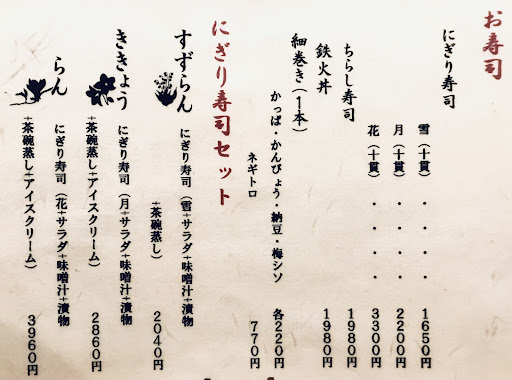 お寿司
にぎり寿司
雪（十貫）・・・・１６５０円
月（十貫）・・・・２２００円
花（十貫）・・・・３３００円
ちらし寿司 １９８０円
鉄火丼 １９８０円
細巻き（１本）
かっぱ・かんぴょう・納豆・梅シソ 各２２０円
ネギトロ ７７０円
にぎり寿司セット
すずらん
にぎり寿司（雪＋サラダ＋味噌汁＋漬物
＋茶碗蒸し） ２０４０円
ききょう
にぎり寿司（月＋サラダ＋味噌汁＋漬物
＋茶碗蒸し＋アイスクリーム） ２８６０円
らん
にぎり寿司（花＋サラダ＋味噌汁＋漬物
＋茶碗蒸し＋アイスクリーム） ３９６０円